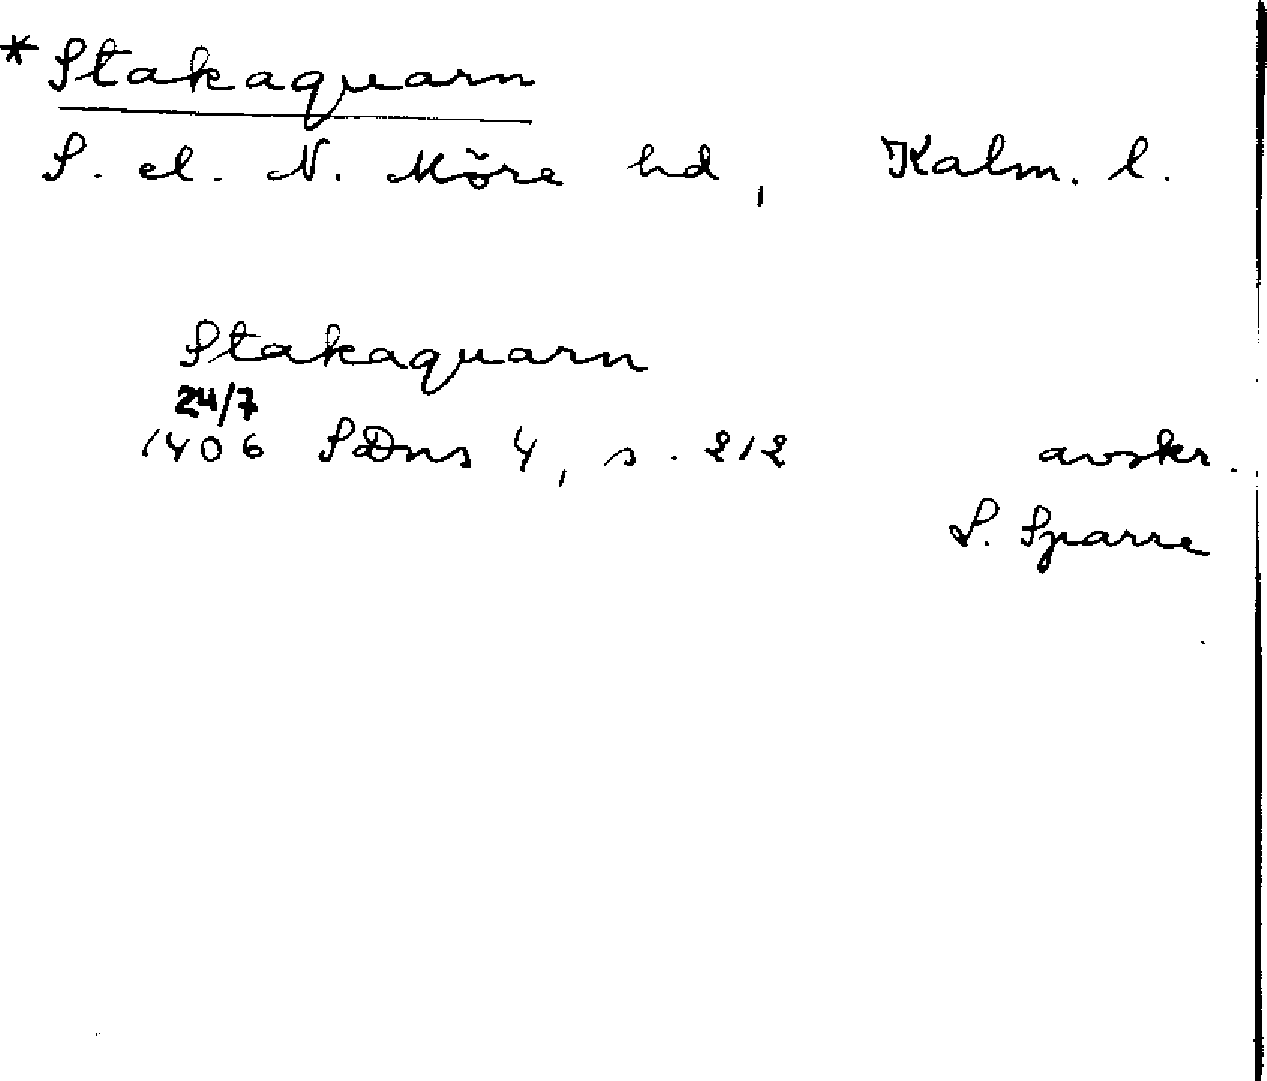 *Stakaquarn
S. el. N. Möre hd, Kalm. l.
Stakaquarn
24/7
1406 SDns 4, s. 212 avskr.
S. Sparre